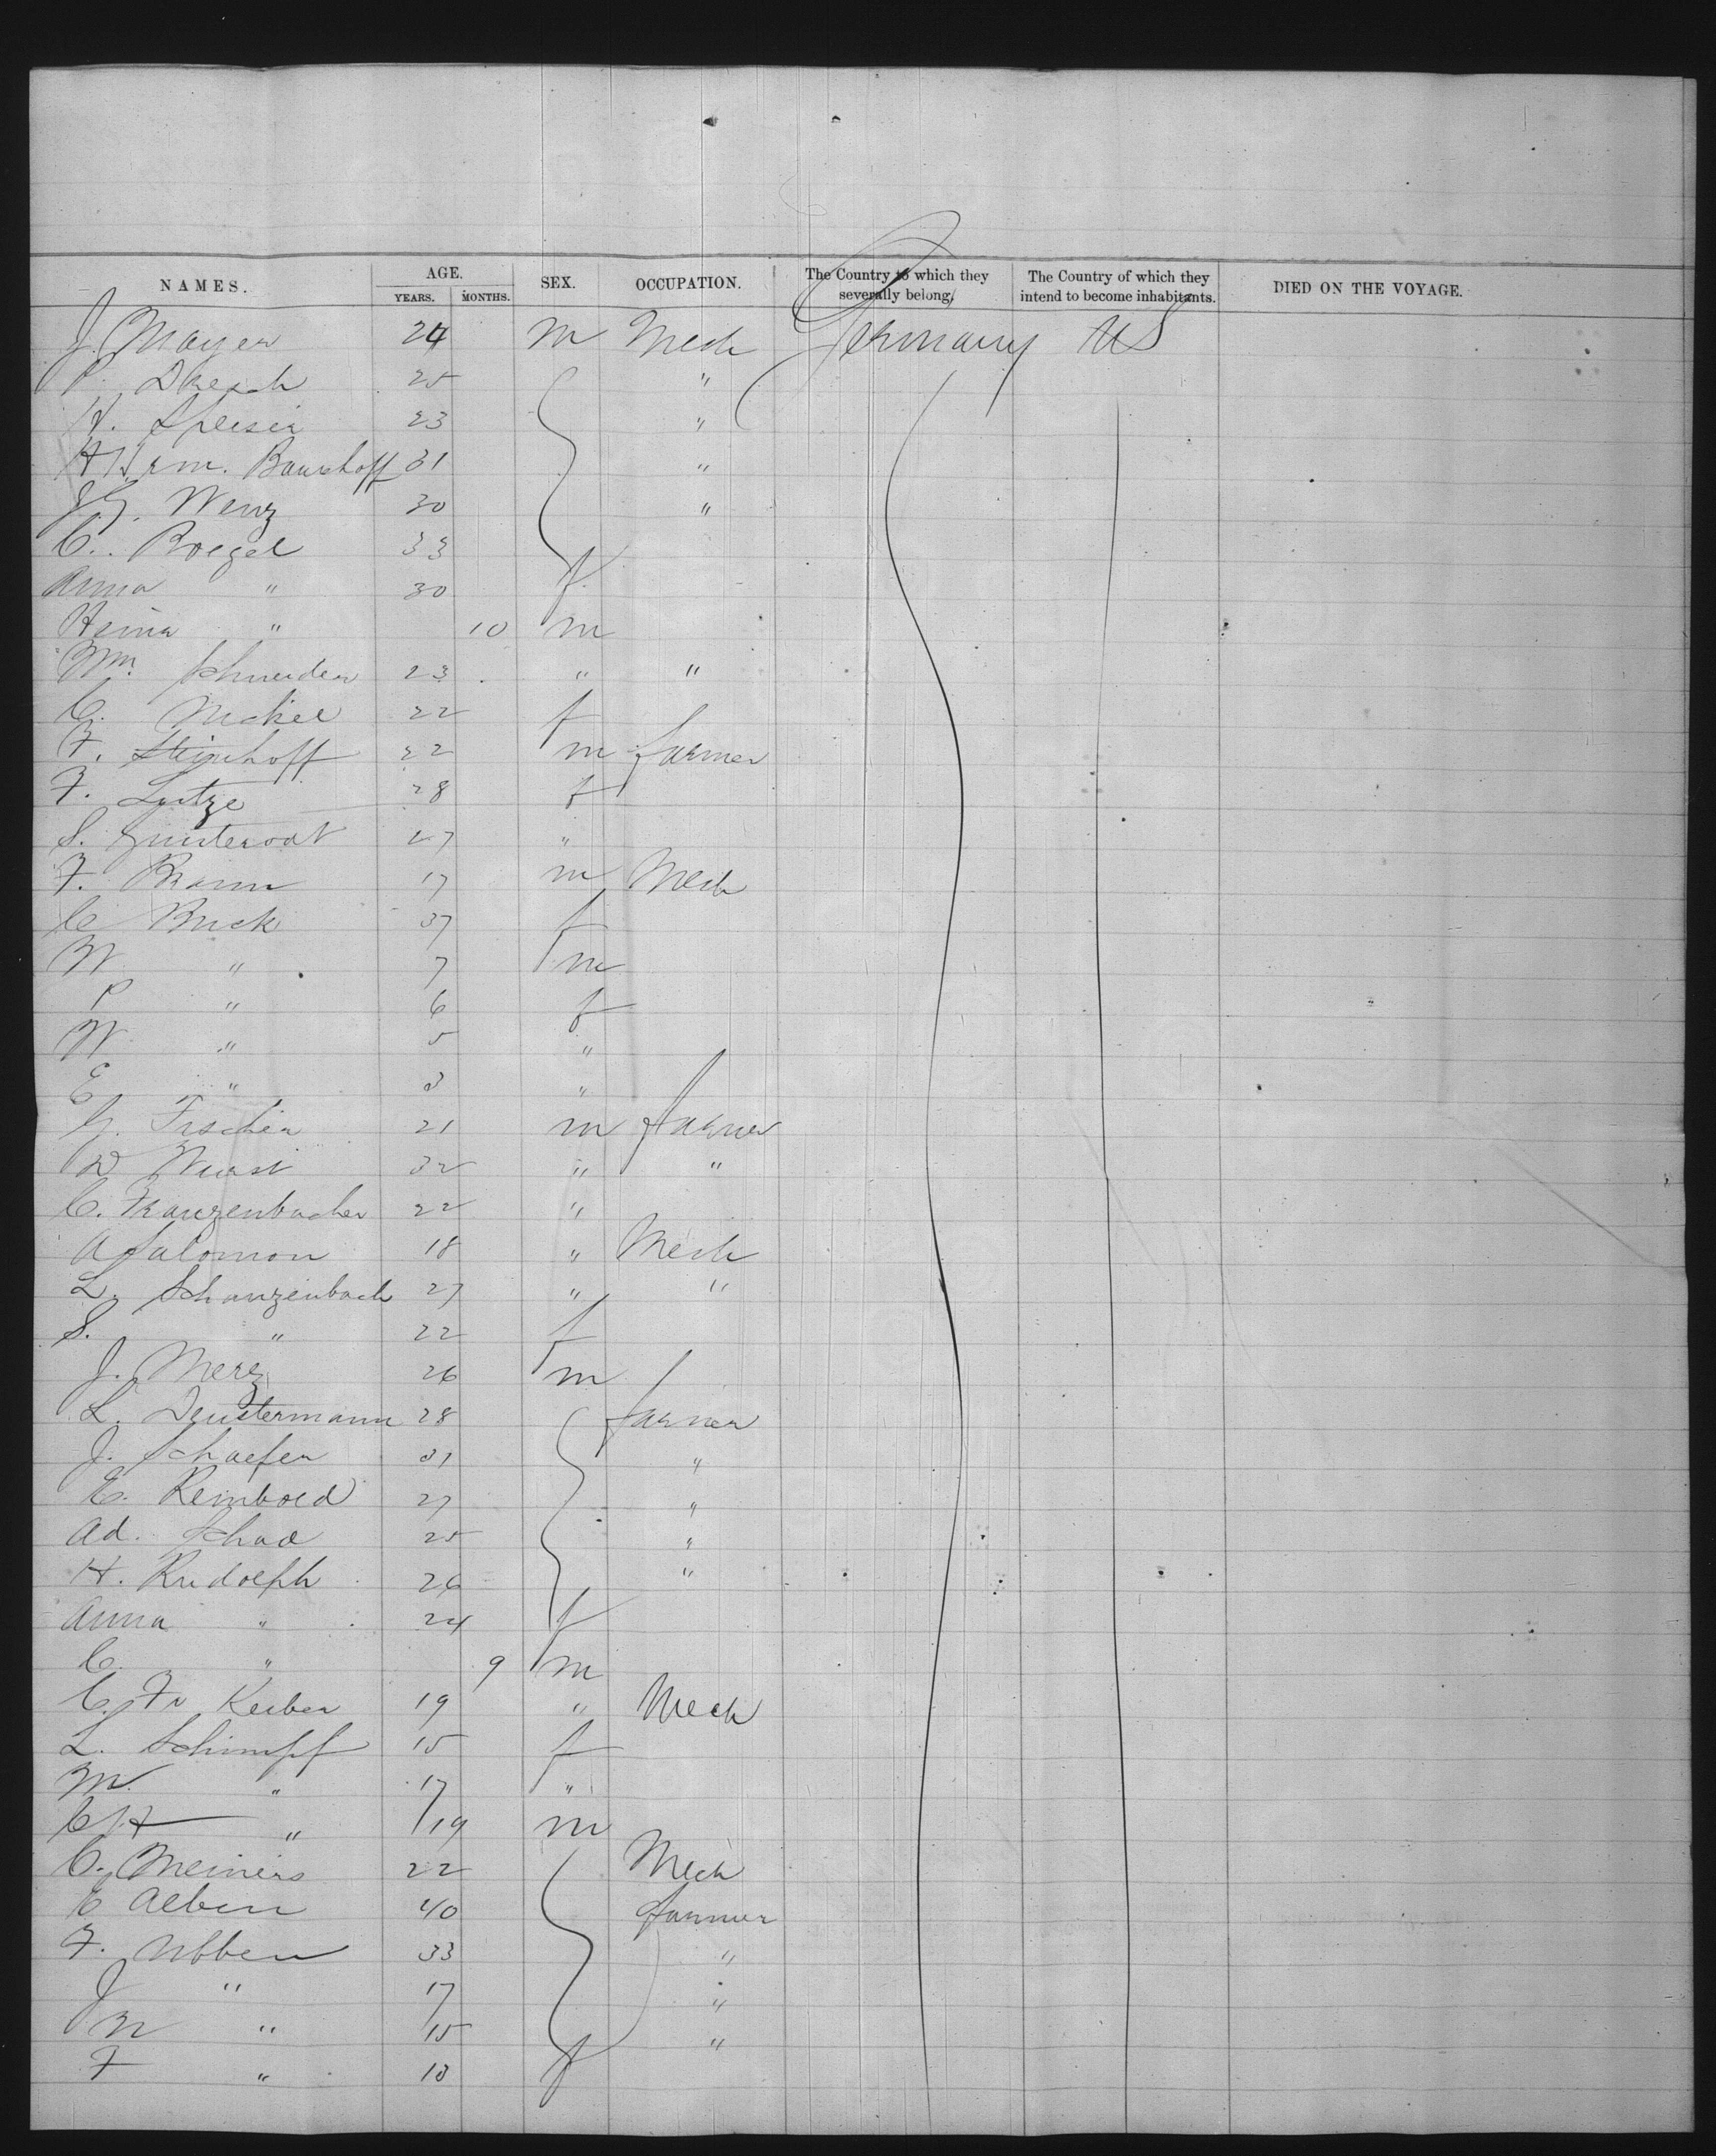 NAMES. AGE. SEX. OCCUPATION. The Country to which they severally belong, The Country of which they intend to become inhabitants. DIED ON THE VOYAGE.
YEARS. MONTHS.
J. Mayer 24 m Mech Germany US
P. 25 "
H. 23 "
Herm. Baurhoff 31 "
J G. Wenz 30 "
C. Roegel 33
Anna " 30 f
" 10 m
Wm. Schneider 23 " "
C. Nickel 22 f
F. Steinhoff 22 m farmer
F. Lytze 28 f
S. 27 "
F. 17 m Mech
C Buck 37 f
W " 7 m
P " 6 f
W " 5 "
E " 3 "
G. Fischer 21 m farmer
W 32 " "
C. Franzenbacher 22 "
A Salomon 18 " Mech
L. Schanzenbach 27 " "
S. " 22 f
J. Merz 26 m
L. Deustermann 28 farmer
J. Schaefer 31 "
E. Reinbold 27 "
Ad. Schad 25 "
H. Rudolph 26 "
Anna " 24 f
C. " 9 m
C. Fr Keiber 19 " Mech
L. Schimpf 15 f
M. " 17 "
C H " 19 m
C. Meiners 22 Mech
E Alben 40 farmer
F. Ubben 33 "
J " 17 "
N " 15 "
F " 18 f